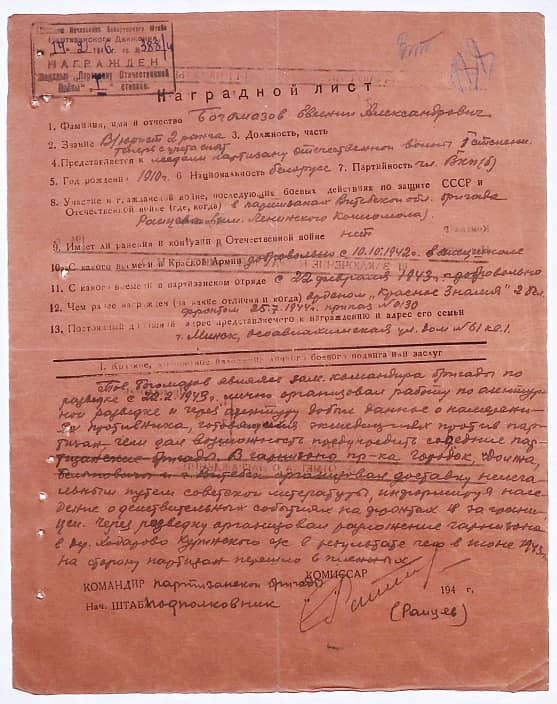 Приказом Начальника Белорусского Штаба
Партизанского Движения
НАГРАЖДЕН
Медалью „Партизану Отечественной
Войны" I степени.
Наградной лист
1. Фамилия, имя и отчество Богомазов Евгений Александрович
2. Звание В/юрист 2 ранга 3. Должность, часть
4. Представляется к медали партизану отечественной войны I степени.
5. Год рождения 1910г. 6 Национальность беларус 7. Партийность чл. ВКП(б)
8. Участие в гражданской войне, последующих боевых действиях по защите СССР и
Отечественной войне (где, когда) в партизанах Витебской обл. бригада
Райцева (им. Ленинского Комсомола).
9. Имеет ли ранения и контузии в Отечественной войне нет
10. С какого времени в Красной Армии добровольно с 10.10.1942г. в
11. С какого времени в партизанском отряде с 22 февраля 1943г. добровольно
12. Чем ранее награжден (за какие отличия и когда) орденом „Красное Знамя" 2
фронтом 25.7.1944г. приказ №0130
13. Постоянный домашний адрес представляемого к награждению и адрес его семьи
г. Минск, осоавиахимская ул. дом №61 кв.1.
I. Краткое, конкретное изложение личного боевого подвига или заслуг
Тов. Богомазов являясь зам. командира бригады по
разведке с 22.2.1943г. лично организовал работу по агентур
ной разведке и через агентуру добыл данное о намерени
и противника, экспедициях против пар
тизан, чем дал возможность предупредить соседние пар
тизанские бригады. В гарнизоны пр-ка городок,
и г. Витебск организовал доставку нелега
льным путем советской литературы, информируя насе
ление о действительных событиях на фронтах и за грани
цей. Через разведку организовал разложение гарнизона
в Хобарово Куринского с/с в результате чего в июне 1943г.
на сторону партизан перешло
КОМАНДИР партизанской бригады КОМИССАР
Нач. ШТАБА подполковник 194 г,
(Райцев)